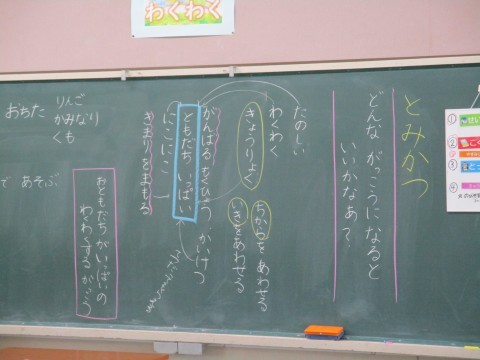 わくわく
とみかつ
どんな がっこうになると
いいかなぁ?
たのしい
わくわく
きょうりょく
ちからをあわせる
いきをあわせる
がんばる もくひょう かいけつ
ともだち いっぱい
にこにこ
きまりをまもる
おともだちがいっぱいの
わくわくするがっこう
おちた
りんご
かみなり
くも
で あそぶ
①
②
③
④